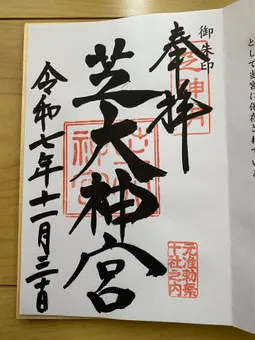 として当宮に保存されている
御朱印
奉拝
芝神明
元准勅祭
十社之内
芝大神宮
令和七年十一月三十日